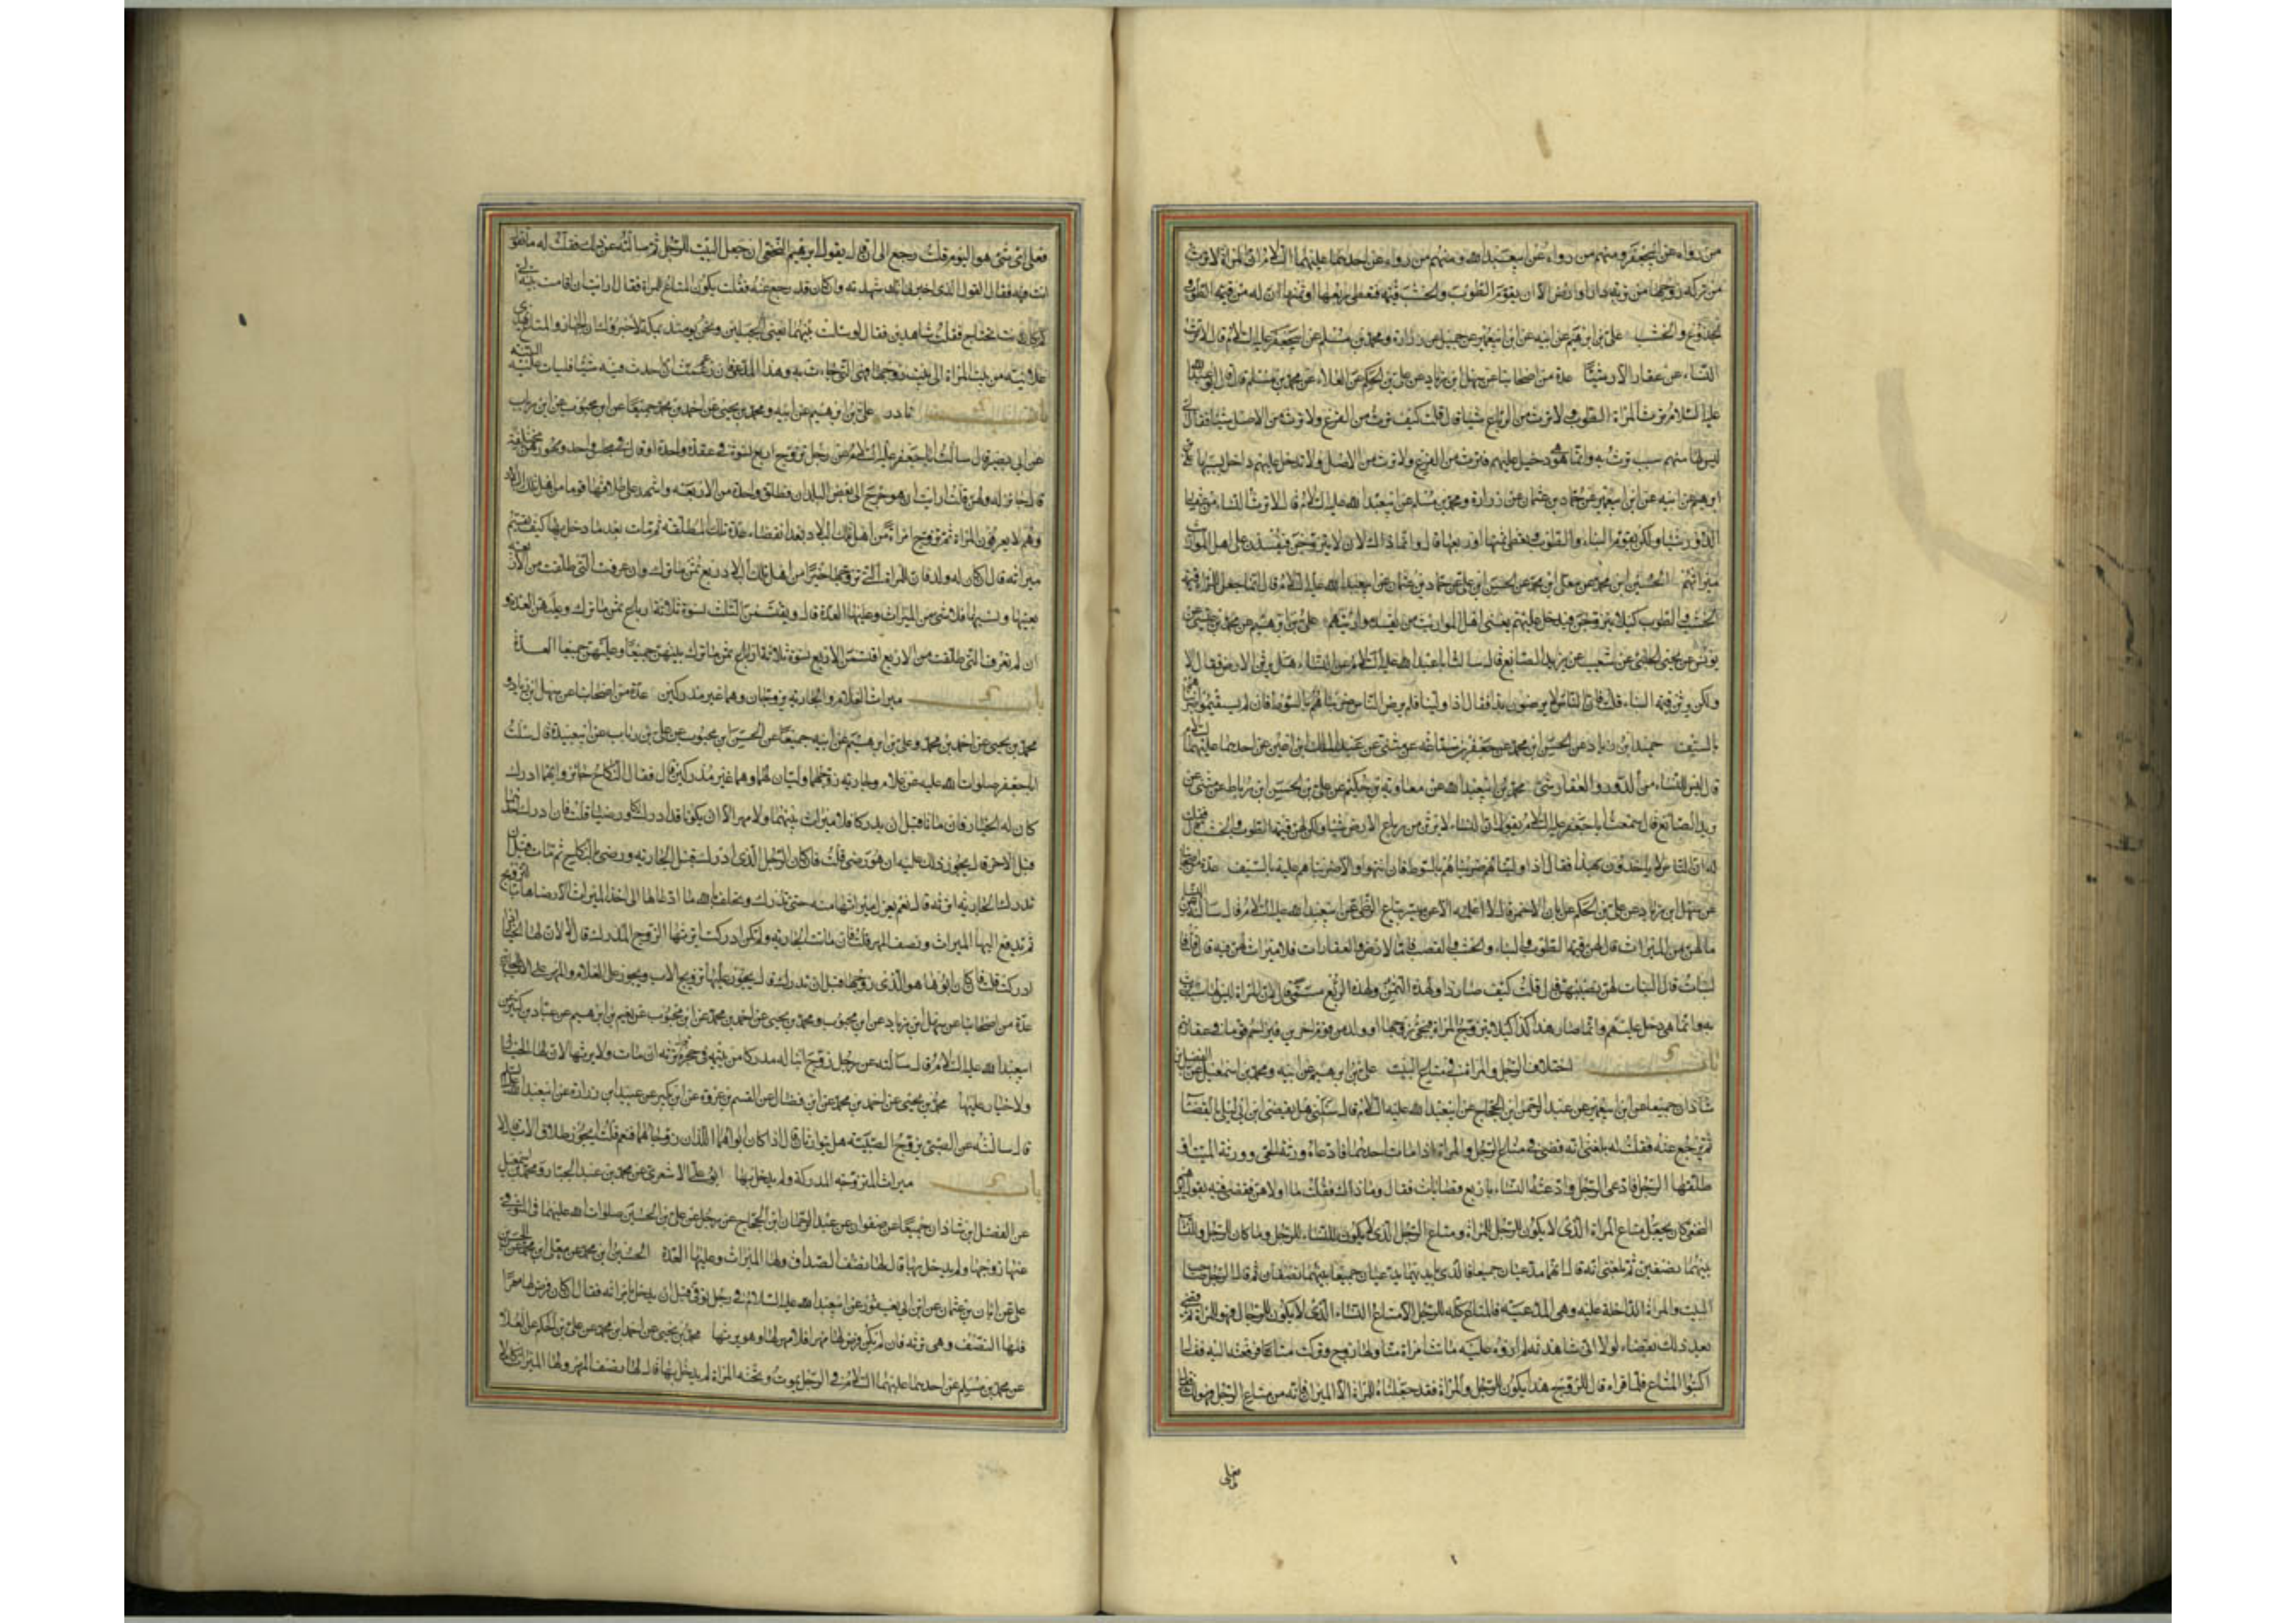 من رواه عن ابي جعفر ومنهم من رواه عن ابي عبد الله ومنهم من رواه عن احدهما عليهما السلام ان المراة لا ترث
من تركه زوجها من تربة دار او ارض الا ان يقوم الطوب والخشب قيمة فتعطى ربعها او ثمنها ان له من قيمة الطوب
الجذوع والخشب علي بن ابرهيم عن ابيه عن ابن ابي عمير عن جميل عن زرارة ومحمد بن مسلم عن ابي جعفر عليه السلام قال لا ترث
النساء من عقار الارض شيئا عدة من اصحابنا عن سهل ابن زياد عن علي بن الحكم عن العلاء عن محمد بن مسلم قال قال ابو عبد الله
عليه السلام ترث المراة الطوب ولا ترث من الرباع شيئا قال قلت كيف ترث من الفرع ولا ترث من الاصل شيئا فقال لي
ليس لها منهم سبب ترث به وانما هو دخيل عليهم فترث من الفرع ولا ترث من الاصل ولا تدخل عليهم داخل بسببها علي بن
ابرهيم عن ابيه عن ابن ابي عمير عن حماد بن عثمان عن زرارة ومحمد بن مسلم عن ابي عبد الله عليه السلام قال لا ترث النساء من عقار
الدور شيئا ولكن يقوم البناء والطوب وتعطى ثمنها او ربعها قال وانما ذاك لان لا يتزوجن فيفسدن على اهل المواريث
ميراثهم الحسين ابن محمد عن معلى ابن محمد عن الحسن ابن علي عن حماد بن عثمان عن ابي عبد الله عليه السلام قال انما جعل للمراة قيمة
الخشب والطوب كيلا يتزوجن فيدخل عليهم يعني اهل المواريث من يفسد مواريثهم علي بن ابرهيم عن محمد بن عيسى عن
يونس عن يحيى الحلبي عن شعيب عن يزيد الصائغ قال سالت ابا عبد الله عليه السلام عن النساء هل يرثن الارض فقال لا
ولكن يرثن قيمة البناء قلت فان الناس لا يرضون بذا فقال اذا ولينا فلم يرض الناس ضربناهم بالسوط فان لم يستقيموا ضربناهم
بالسيف حميد ابن زياد عن الحسن ابن محمد عن جعفر بن سماعة عن مثنى عن عبد الملك ابن اعين عن احدهما عليهما السلام
قال ليس للنساء من الدور والعقار شئ محمد بن ابي عبد الله عن معاوية بن حكيم عن علي بن الحسن ابن رباط عن مثنى عن
يزيد الصائغ قال سمعت ابا جعفر عليه السلام يقول ان النساء لا يرثن من رباع الارض شيئا ولكن لهن قيمة الطوب والخشب قال فقلت
له ان الناس لا ياخذون بهذا فقال اذا وليناهم ضربناهم بالسوط فان انتهوا والا ضربناهم عليه بالسيف عدة من اصحابنا
عن سهل ابن زياد عن علي بن الحكم عن ابان الاحمر قال لا اعلمه الا عن ميسر بياع الزطي عن ابي عبد الله عليه السلام قال سالته عن النساء
ما لهن من الميراث قال لهن قيمة الطوب والبناء والخشب والقصب فاما الارض والعقارات فلا ميراث لهن فيه قال قلت فا
لبنات قال البنات لهن نصيبهن قال قلت كيف صار ذا ولهذه الثمن ولهذه الربع مسمى قال لان المراة ليس لها نسب ترث
به وانما هي دخل عليهم وانما صار هذا كذا كيلا تتزوج المراة فيجئ زوجها او ولد من قوم اخرين فيزاحم قوما في عقارهم
باب اختلاف الرجل والمراة في متاع البيت علي بن ابرهيم عن ابيه ومحمد ابن اسمعيل عن الفضل بن
شاذان جميعا عن ابن ابي عمير عن عبد الرحمن ابن الحجاج عن ابي عبد الله عليه السلام قال سالني هل يقضي ابن ابي ليلى بالقضا
ثم يرجع عنه فقلت له بلغني انه قضى في متاع الرجل والمراة اذا مات احدهما فادعاه ورثة الحي وورثة الميت او
طلقها الرجل فادعى الرجل وادعته النساء باربع قضايات فقال وما ذاك فقلت ما اولاهن فقضى فيه بقول ابرهيم
النخعي كان يجعل متاع المراة الذي لا يكون للرجل للمراة ومتاع الرجل الذي لا يكون للنساء للرجل وما كان للرجل والنساء
بينهما نصفين ثم بلغني انه قال انهما مدعيان جميعا فالذي بايديهما يدعيان جميعا بينهما نصفان ثم قال الرجل صاحب
البيت والمراة الداخلة عليه وهي المدعية فالمتاع كله للرجل الا متاع النساء الذي لا يكون للرجال فهو للمراة ثم قضى
بعد ذلك بقضاء لولا اني شاهدته لم اروه عليه ماتت امراة منا ولها زوج وتركت متاعا فرفعته اليه فقال
اكتبوا المتاع فلما قراه قال للزوج هذا يكون للرجل والمراة فقد جعلناه للمراة الا الميزان فانه من متاع الرجل فهو لك فقال
فعلى
فعلى اي شئ هو اليوم قلت رجع الى ان قال بقول ابرهيم النخعي ان جعل البيت للرجل ثم سالته عن ذلك فقلت له ما تقول
انت فيه فقال القول الذي اخبرتني انك شهدته وان كان قد رجع عنه فقلت يكون المتاع للمراة فقال ارايت ان اقامت بينة الى
كم كانت تحتاج فقلت شاهدين فقال لو سالت من بينهما يعني الجبلين ونحن يومئذ بمكة لاخبروك ان الجهاز والمتاع يهدى
علانية من بيت المراة الى بيت زوجها فهي التي جاءت به وهذا المدعي فان زعم انه احدث فيه شيئا فليات عليه البينة
باب نادر علي بن ابرهيم عن ابيه ومحمد بن يحيى عن احمد بن محمد جميعا عن ابن محبوب عن ابن رياب
عن ابي بصير قال سالت ابا جعفر عليه السلام عن رجل تزوج اربع نسوة في عقدة واحدة او قال في مجلس واحد ومهورهن مختلفة
قال جائز له ولهن قلت ارايت ان هو خرج الى بعض البلدان فطلق واحدة من الاربعة واشهد على طلاقها قوما من اهل تلك البلاد
وهم لا يعرفون المراة ثم تزوج امراة من اهل تلك البلاد بعد انقضاء عدة تلك المطلقة ثم مات بعد ما دخل بها كيف يقسم
ميراثه قال ان كان له ولد فان للمراة التي تزوجها اخيرا من اهل تلك البلاد ربع ثمن ما ترك وان عرفت التي طلقت من الاربعة
بعينها ونسبها فلا شئ من الميراث وعليها العدة قال ويقتسمن الثلث نسوة ثلاثة ارباع ثمن ما ترك وعليهن العدة و
ان لم تعرف التي طلقت من الاربع اقتسمن الاربع نسوة ثلاثة ارباع ثمن ما ترك بينهن جميعا وعليهن جميعا العدة
باب ميراث الغلام والجارية يزوجان وهما غير مدركين عدة من اصحابنا عن سهل ابن زياد و
محمد بن يحيى عن احمد بن محمد وعلي بن ابرهيم عن ابيه جميعا عن الحسن ابن محبوب عن علي بن رياب عن ابي عبيدة قال سالت
ابا جعفر صلوات الله عليه عن غلام وجارية زوجهما وليان لهما وهما غير مدركين قال فقال النكاح جائز وايهما ادرك
كان له الخيار فان ماتا قبل ان يدركا فلا ميراث بينهما ولا مهر الا ان يكونا قد ادركا ورضيا قلت فان ادرك احدهما
قبل الاخر قال يجوز ذلك عليه ان هو رضي قلت فان كان الرجل الذي ادرك قبل الجارية ورضي بالنكاح ثم مات قبل ان
تدرك الجارية اترثه قال نعم يعزل ميراثها منه حتى تدرك وتحلف بالله ما ادعاها الى اخذ الميراث الا رضاها بالتزويج
ثم يدفع اليها الميراث ونصف المهر قلت فان ماتت الجارية ولم تكن ادركت ايرثها الزوج المدرك قال لا لان لها الخيار اذا
ادركت قلت فان كان ابوها هو الذي زوجها قبل ان تدرك قال يجوز عليها تزويج الاب ويجوز على الغلام والمهر على الاب للجارية
عدة من اصحابنا عن سهل ابن زياد عن ابن محبوب ومحمد بن يحيى عن احمد بن محمد عن ابن محبوب عن نعيم بن ابرهيم عن عباد بن كثير عن
ابي عبد الله عليه السلام قال سالته عن رجل زوج ابنا له مدركا من يتيمة في حجره قال ترثه ان مات ولا يرثها لان لها الخيار
ولا خيار عليها محمد بن يحيى عن احمد بن محمد عن ابن فضال عن القسم بن عروة عن ابن بكير عن عبيد ابن زرارة عن ابي عبد الله عليه السلام
قال سالته عن الصبي يزوج الصبية هل يتوارثان قال اذا كان ابواهما اللذان زوجاهما فنعم قلت ايجوز طلاق الاب قال لا
باب ميراث المتزوجة المدركة ولم يدخل بها ابو علي الاشعري عن محمد بن عبد الجبار ومحمد بن اسمعيل
عن الفضل ابن شاذان جميعا عن صفوان عن عبد الرحمان ابن الحجاج عن رجل عن علي بن الحسين صلوات الله عليهما في المتوفى
عنها زوجها ولم يدخل بها قال لها نصف الصداق ولها الميراث وعليها العدة الحسين ابن محمد عن معلى ابن محمد عن الحسن بن
علي عن ابان بن عثمان عن ابن ابي يعفور عن ابي عبد الله عليه السلام في رجل توفي قبل ان يدخل بامراته فقال ان كان فرض لها مهرا
فلها النصف وهي ترثه فان لم يكن فرض لها مهرا فلا مهر لها وهو يرثها محمد بن يحيى عن احمد ابن محمد عن علي بن الحكم عن العلا
عن محمد بن مسلم عن احدهما عليهما السلام في الرجل يموت وتحته المراة لم يدخل بها قال لها نصف المهر ولها الميراث كاملا